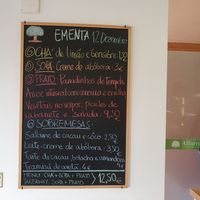 EMENTA 12 Dezembro
CHÁ: de limão e Gengibre 1,50
SOPA: Creme de abóbora 3€
PRATO: Panadinhos de Tempeh
Arroz integral com cenoura e ervilha
Nabiças no vapor, pickles de
rabanete e Salada. 9,50
SOBREMESAS:
Salame de cacau e côco 2,50
Leite-creme de abóbora 3€
Tarte de cacau,
Tiramisú de 4€
MENU: CHÁ + SOPA + PRATO 12,50€
SOPA + PRATO